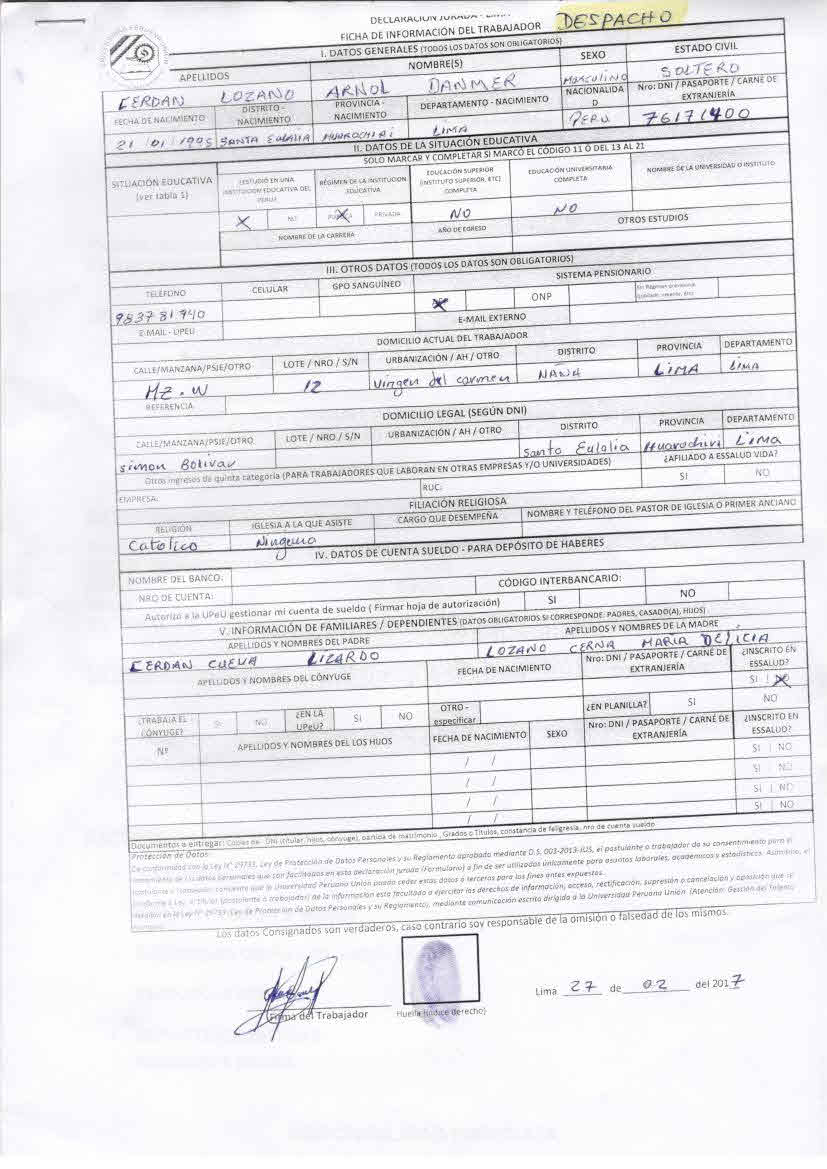 DECLARACIÓN JURADA - LIMA
FICHA DE INFORMACIÓN DEL TRABAJADOR
DESPACHO
I. DATOS GENERALES (TODOS LOS DATOS SON OBLIGATORIOS)
APELLIDOS NOMBRE(S) SEXO ESTADO CIVIL
CERDAN LOZANO ARNOL DANMER Masculino SOLTERO
FECHA DE NACIMIENTO DISTRITO - NACIMIENTO PROVINCIA - NACIMIENTO DEPARTAMENTO - NACIMIENTO NACIONALIDAD Nro: DNI / PASAPORTE / CARNÉ DE EXTRANJERÍA
21 / 01 / 1995 SANTA EULALIA HUAROCHIRI LIMA PERU 76171400
II. DATOS DE LA SITUACIÓN EDUCATIVA
SOLO MARCAR Y COMPLETAR SI MARCÓ EL CÓDIGO 11 O DEL 13 AL 21
SITUACIÓN EDUCATIVA (ver tabla 1) ¿ESTUDIÓ EN UNA INSTITUCIÓN EDUCATIVA DEL PERÚ? RÉGIMEN DE LA INSTITUCIÓN EDUCATIVA EDUCACIÓN SUPERIOR (INSTITUTO SUPERIOR, ETC) COMPLETA EDUCACIÓN UNIVERSITARIA COMPLETA NOMBRE DE LA UNIVERSIDAD O INSTITUTO
X NO X PRIVADA NO NO
NOMBRE DE LA CARRERA AÑO DE EGRESO OTROS ESTUDIOS
III. OTROS DATOS (TODOS LOS DATOS SON OBLIGATORIOS)
TELÉFONO CELULAR GPO SANGUÍNEO SISTEMA PENSIONARIO
983781940 ONP
E-MAIL - UPEU E-MAIL EXTERNO
DOMICILIO ACTUAL DEL TRABAJADOR
CALLE/MANZANA/PSJE/OTRO LOTE / NRO / S/N URBANIZACIÓN / AH / OTRO DISTRITO PROVINCIA DEPARTAMENTO
MZ. W 12 Virgen del carmen NAÑA LIMA LIMA
REFERENCIA
DOMICILIO LEGAL (SEGÚN DNI)
CALLE/MANZANA/PSJE/OTRO LOTE / NRO / S/N URBANIZACIÓN / AH / OTRO DISTRITO PROVINCIA DEPARTAMENTO
Simon Bolivar Santa Eulalia Huarochiri Lima
Otros ingresos de quinta categoría (PARA TRABAJADORES QUE LABORAN EN OTRAS EMPRESAS Y/O UNIVERSIDADES) ¿AFILIADO A ESSALUD VIDA?
EMPRESA: RUC: SI NO
FILIACIÓN RELIGIOSA
RELIGIÓN IGLESIA A LA QUE ASISTE CARGO QUE DESEMPEÑA NOMBRE Y TELÉFONO DEL PASTOR DE IGLESIA O PRIMER ANCIANO
Catolico Ninguna
IV. DATOS DE CUENTA SUELDO - PARA DEPÓSITO DE HABERES
NOMBRE DEL BANCO: CÓDIGO INTERBANCARIO:
NRO DE CUENTA:
Autorizo a la UPeU gestionar mi cuenta de sueldo ( Firmar hoja de autorización) SI NO
V. INFORMACIÓN DE FAMILIARES / DEPENDIENTES (DATOS OBLIGATORIOS SI CORRESPONDE: PADRES, CASADO(A), HIJOS)
APELLIDOS Y NOMBRES DEL PADRE APELLIDOS Y NOMBRES DE LA MADRE
CERDAN CUEVA LIZARDO LOZANO CERNA MARIA DELICIA
APELLIDOS Y NOMBRES DEL CÓNYUGE FECHA DE NACIMIENTO Nro: DNI / PASAPORTE / CARNÉ DE EXTRANJERÍA ¿INSCRITO EN ESSALUD?
SI | NO
¿TRABAJA EL CÓNYUGE? SI NO ¿EN LA UPeU? SI NO OTRO - especificar ¿EN PLANILLA? SI NO
Nº APELLIDOS Y NOMBRES DEL LOS HIJOS FECHA DE NACIMIENTO SEXO Nro: DNI / PASAPORTE / CARNÉ DE EXTRANJERÍA ¿INSCRITO EN ESSALUD?
/ / SI | NO
/ / SI | NO
/ / SI | NO
/ / SI | NO
Documentos a entregar: Copias de DNI (titular, hijos, cónyuge), partida de matrimonio, Grados o Títulos, constancia de feligresía, nro de cuenta sueldo
Protección de Datos
De conformidad con la Ley N° 29733, Ley de Protección de Datos Personales y su Reglamento aprobado mediante D.S. 003-2013-JUS, el postulante o trabajador da su consentimiento para el
tratamiento de los datos Personales que son facilitados en esta declaración jurada (Formulario) a fin de ser utilizados únicamente para asuntos laborales, académicos y estadísticos. Asimismo, el
postulante o trabajador consiente que la Universidad Peruana Unión pueda ceder estos datos a terceros para los fines antes expuestos.
Conforme a Ley, el titular (postulante o trabajador) de la información esta facultado a ejercitar los derechos de información, acceso, rectificación, supresión o cancelación y oposición que se
detallan en la Ley N° 29733 (Ley de Protección de Datos Personales y su Reglamento), mediante comunicación escrita dirigida a la Universidad Peruana Unión (Atención: Gestión del Talento
Humano).
Los datos Consignados son verdaderos, caso contrario soy responsable de la omisión o falsedad de los mismos.
Lima 27 de 02 del 2017
Firma del Trabajador Huella (índice derecho)